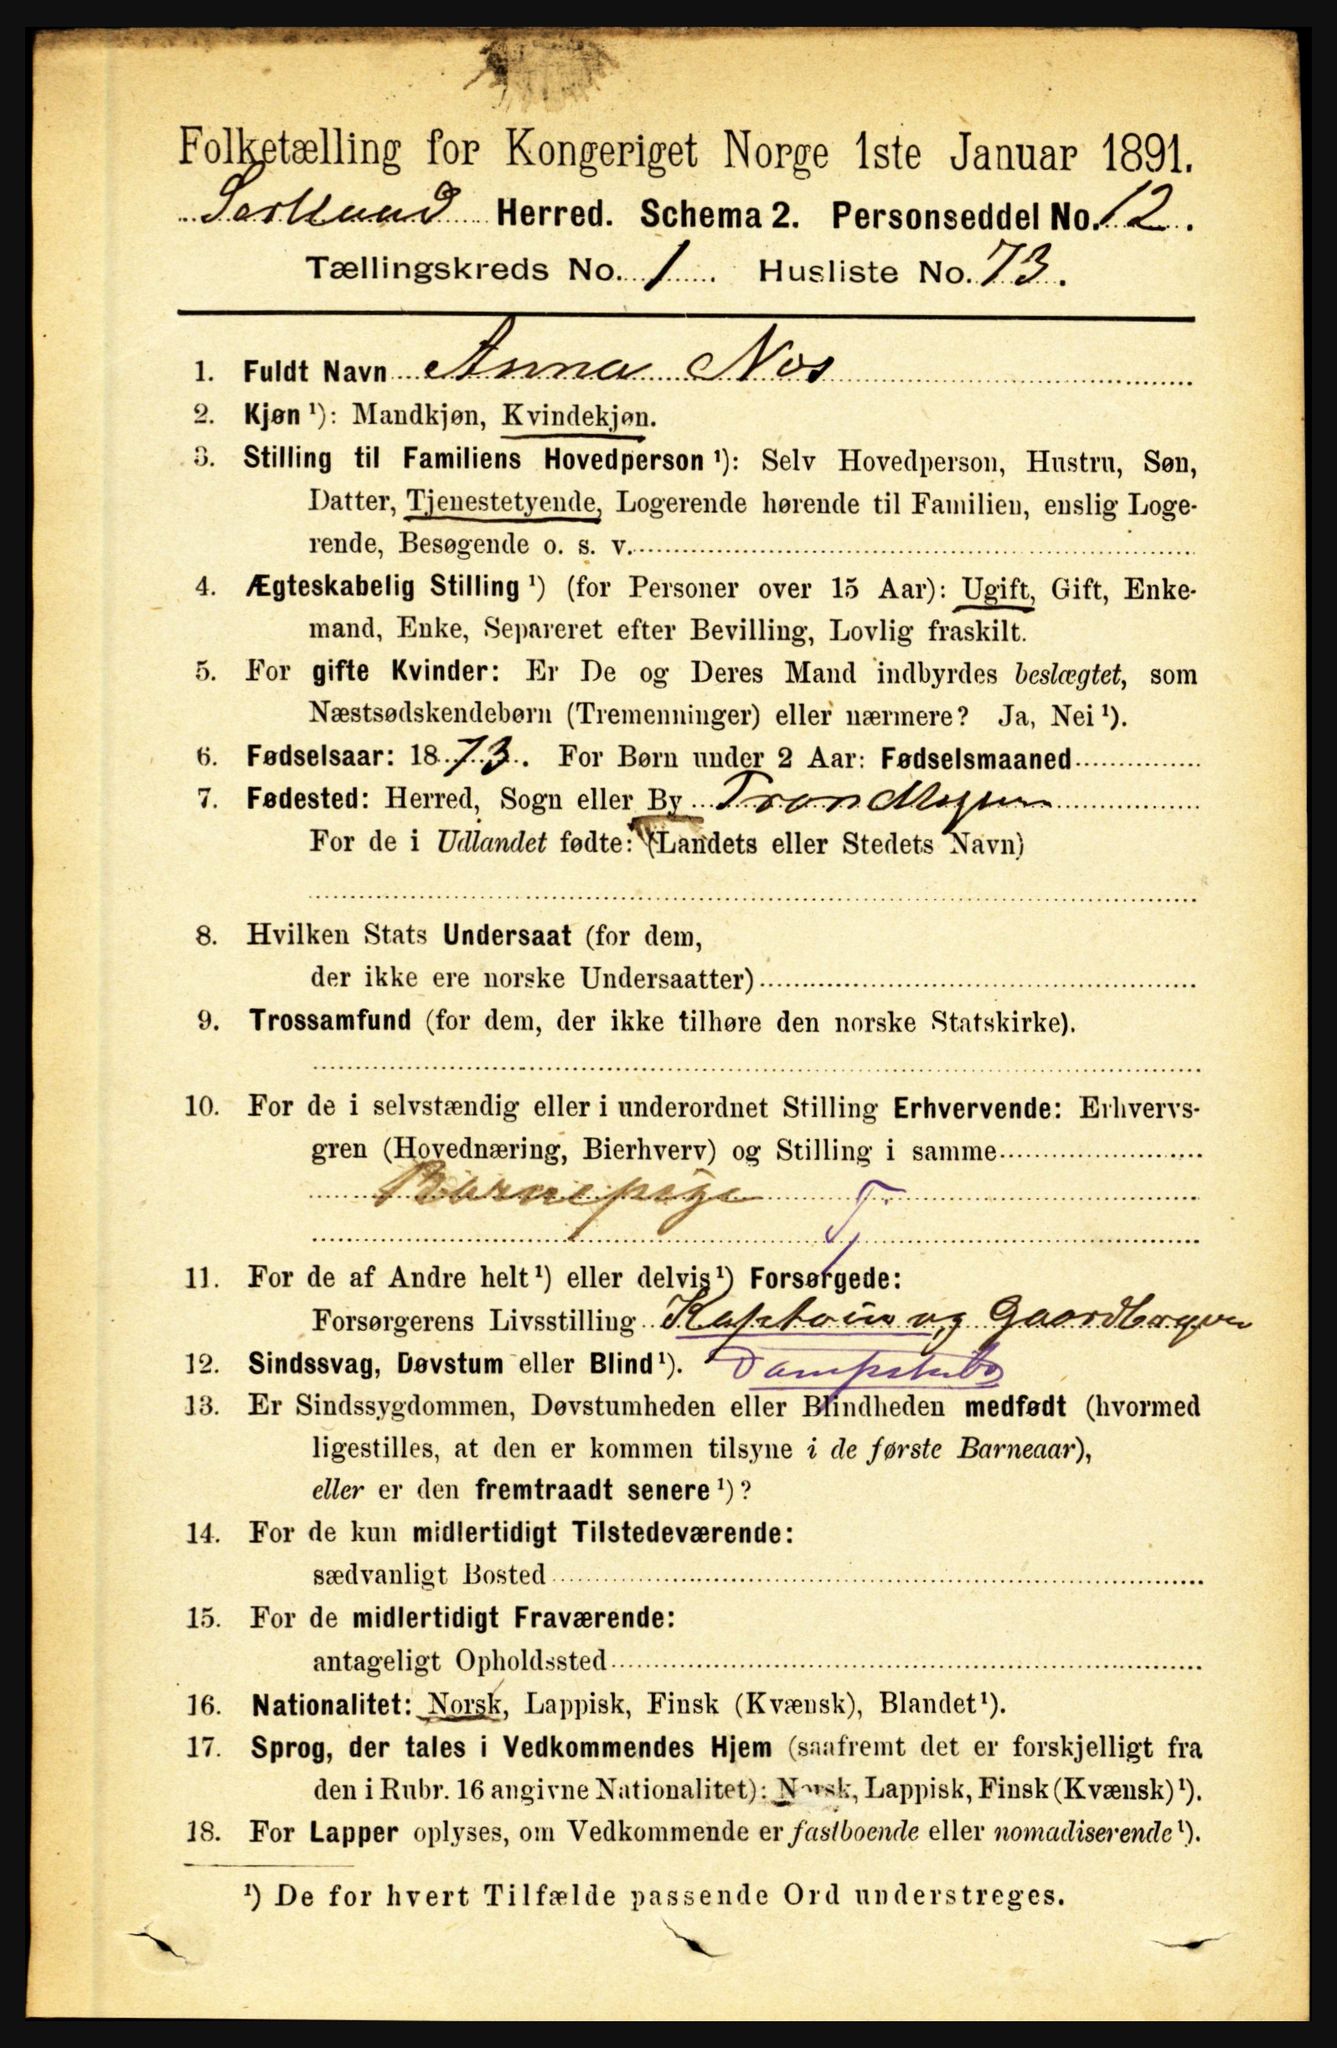 Folketælling for Kongeriget Norge 1ste Januar 1891.
Herred. Schema 2. Personseddel No. 12.
Tællingskreds No. 1. Husliste No. 73.
1. Fuldt Navn Anna Nos
2. Kjøn ¹): Mandkjøn, Kvindekjøn.
3. Stilling til Familiens Hovedperson ¹): Selv Hovedperson, Hustru, Søn,
Datter, Tjenestetyende, Logerende hørende til Familien, enslig Loge-
rende, Besøgende o. s. v.
4. Ægteskabelig Stilling ¹) (for Personer over 15 Aar): Ugift, Gift, Enke-
mand, Enke, Separeret efter Bevilling, Lovlig fraskilt.
5. For gifte Kvinder: Er De og Deres Mand indbyrdes beslægtet, som
Næstsødskendebørn (Tremenninger) eller nærmere? Ja, Nei ¹).
6. Fødselsaar: 1873. For Børn under 2 Aar: Fødselsmaaned
7. Fødested: Herred, Sogn eller By Trondhjem
For de i Udlandet fødte: (Landets eller Stedets Navn)
8. Hvilken Stats Undersaat (for dem,
der ikke ere norske Undersaatter)
9. Trossamfund (for dem, der ikke tilhøre den norske Statskirke).
10. For de i selvstændig eller i underordnet Stilling Erhvervende: Erhvervs-
gren (Hovednæring, Bierhverv) og Stilling i samme
Barnepige Tj
11. For de af Andre helt ¹) eller delvis ¹) Forsørgede:
Forsørgerens Livsstilling Kaptain og Gaardbruger
12. Sindssvag, Døvstum eller Blind ¹). Dampskib
13. Er Sindssygdommen, Døvstumheden eller Blindheden medfødt (hvormed
ligestilles, at den er kommen tilsyne i de første Barneaar),
eller er den fremtraadt senere ¹)?
14. For de kun midlertidigt Tilstedeværende:
sædvanligt Bosted
15. For de midlertidigt Fraværende:
antageligt Opholdssted
16. Nationalitet: Norsk, Lappisk, Finsk (Kvænsk), Blandet ¹).
17. Sprog, der tales i Vedkommendes Hjem (saafremt det er forskjelligt fra
den i Rubr. 16 angivne Nationalitet): Norsk, Lappisk, Finsk (Kvænsk) ¹).
18. For Lapper oplyses, om Vedkommende er fastboende eller nomadiserende ¹).
¹) De for hvert Tilfælde passende Ord understreges.